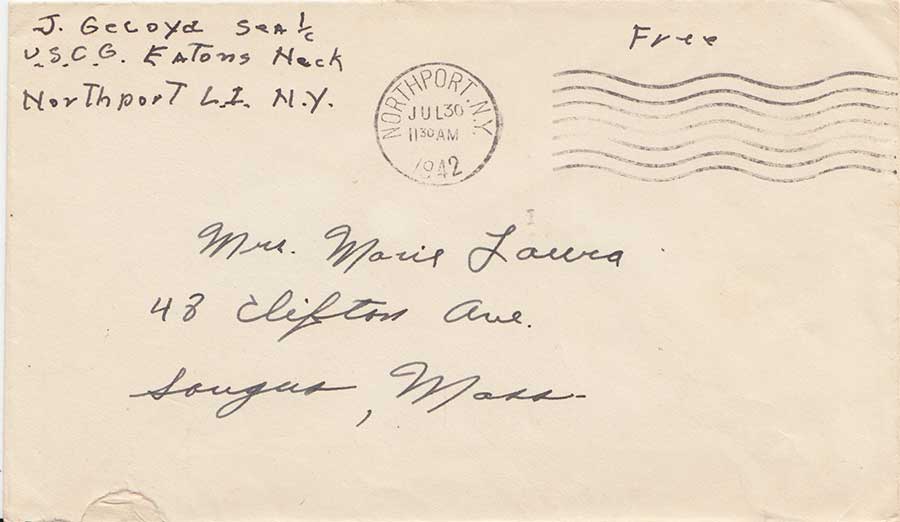 J. Geloyd Sea 1/c
U.S.C.G. Eatons Neck
Northport L.I. N.Y.
Free
NORTHPORT, N.Y.
JUL 30
11 30 AM
1942
Mrs. Marie Laura
48 Clifton Ave.
Sougus, Mass.